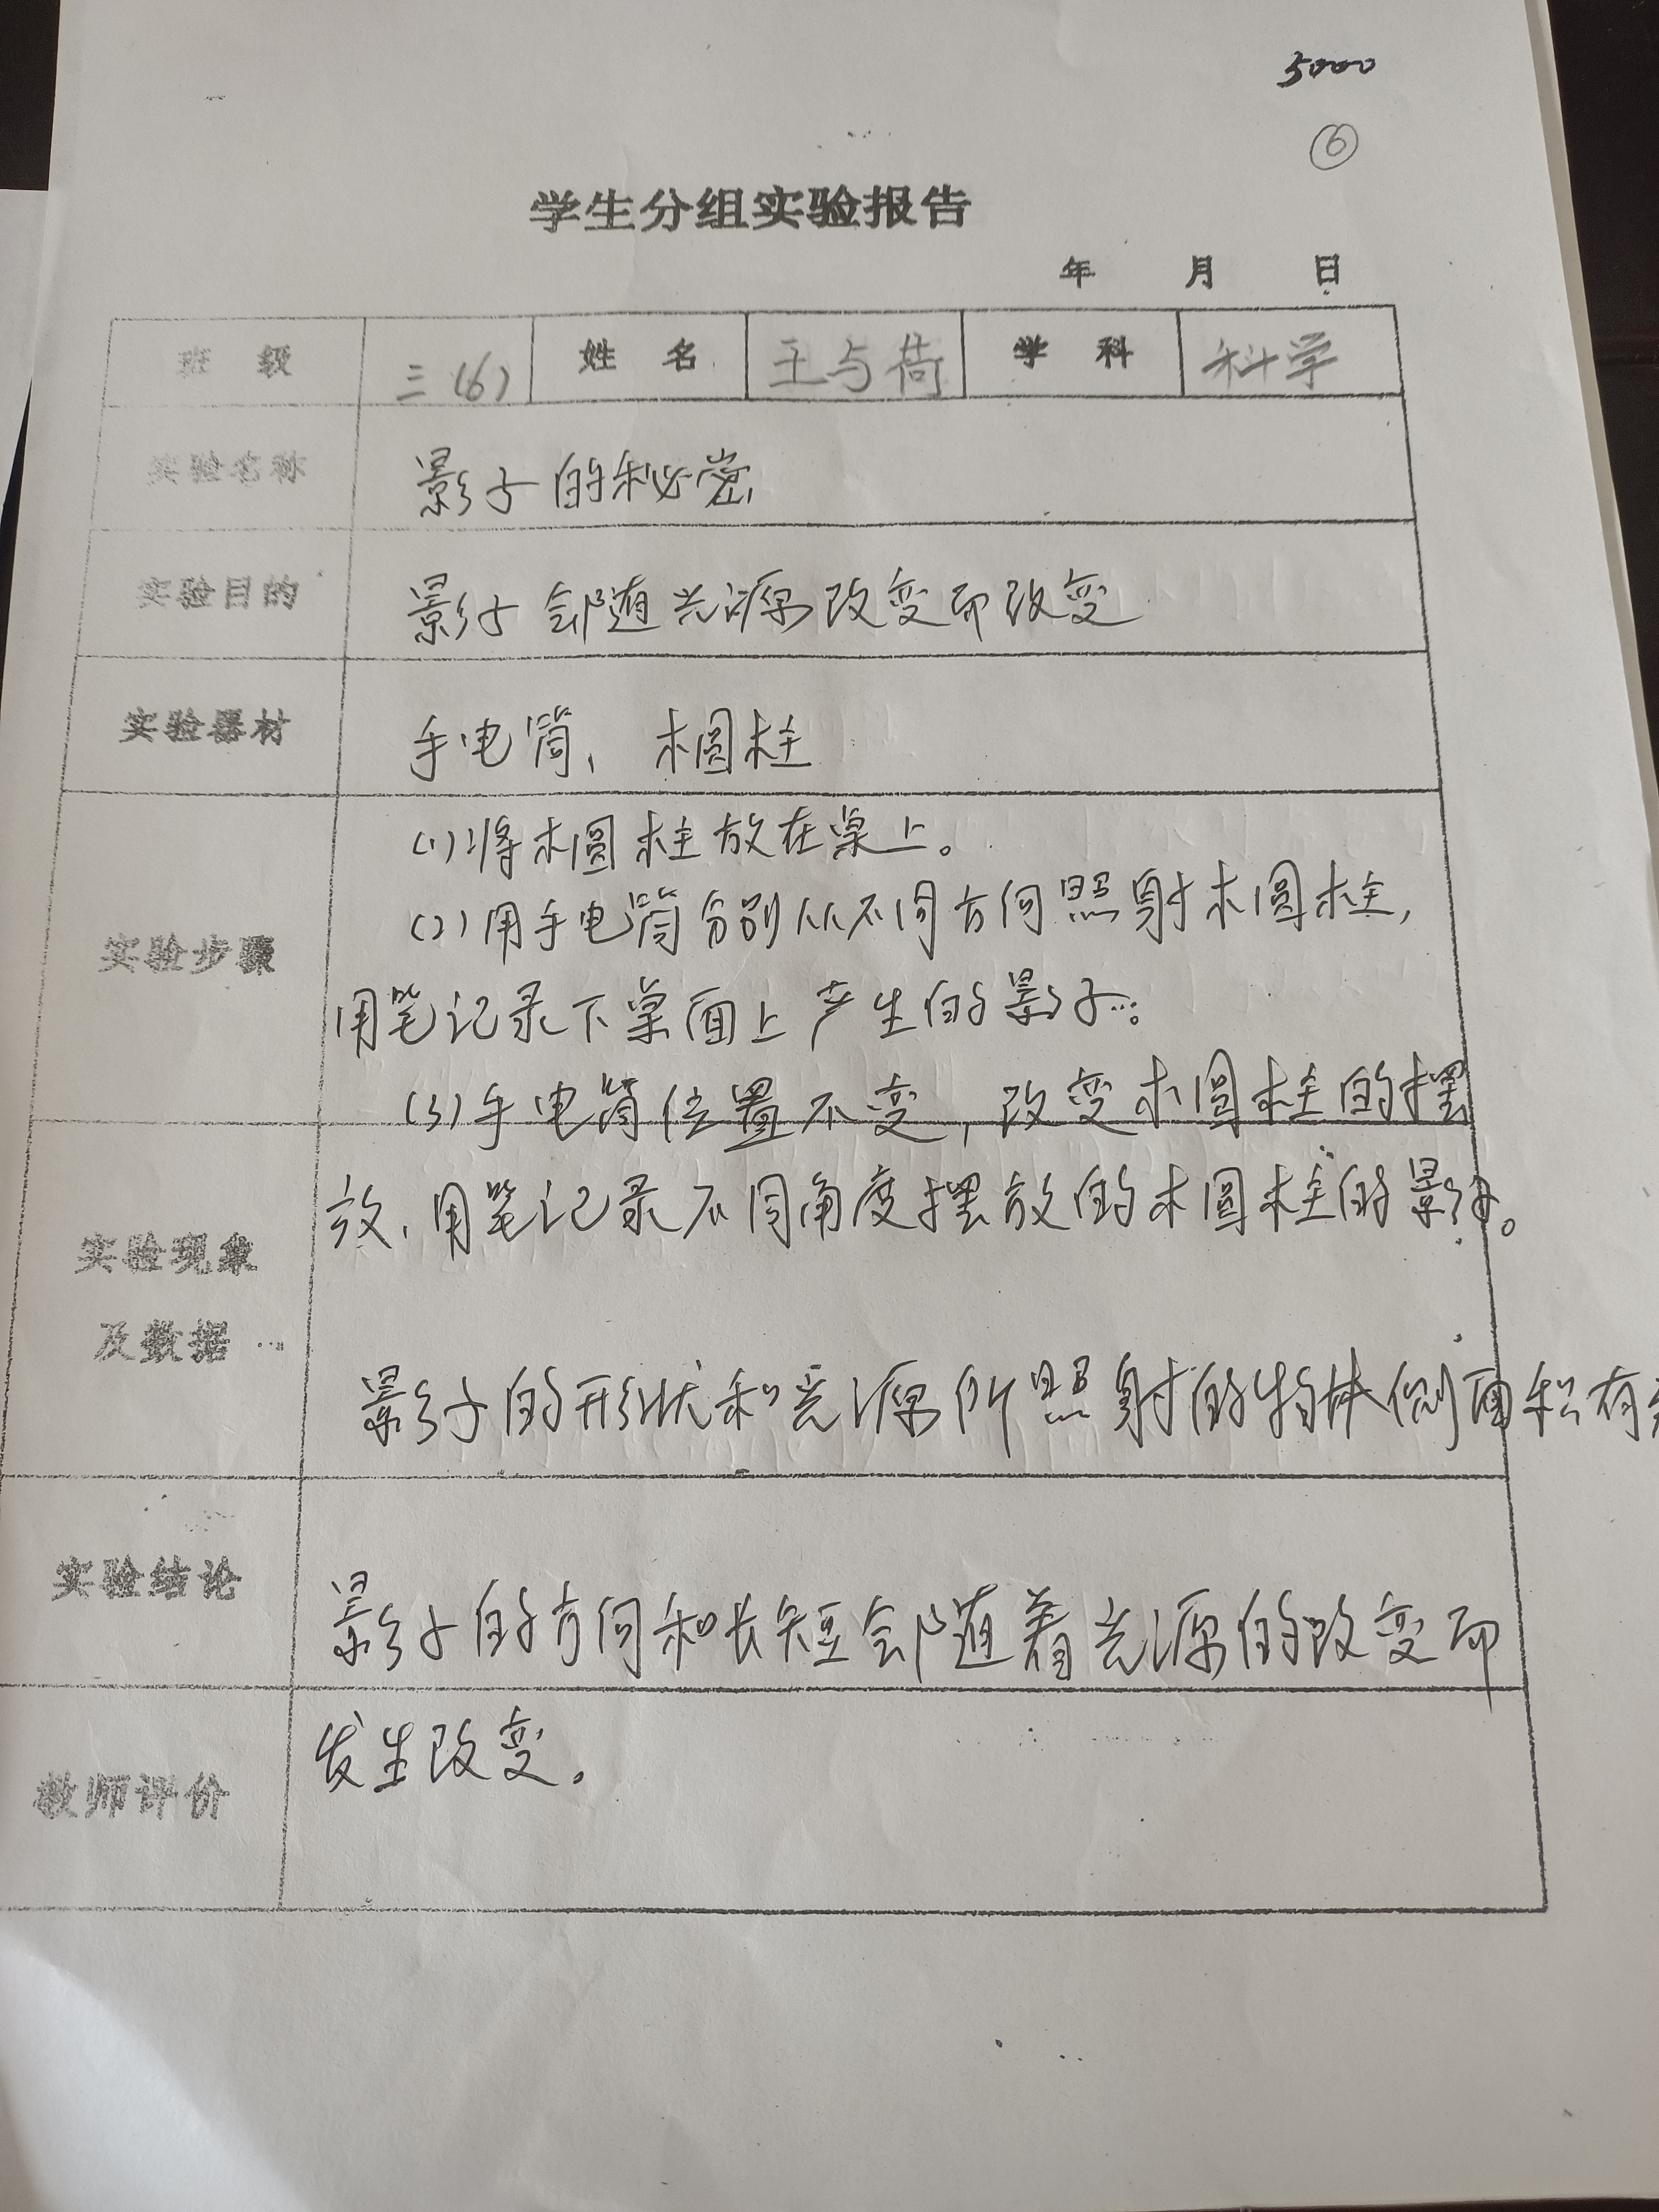 5000
⑥
学生分组实验报告
年 月 日
班 级 三(6) 姓 名 王与荷 学 科 科学
实验名称 影子的秘密
实验目的 影子会随光源改变而改变
实验器材 手电筒、木圆柱
实验步骤
(1)将木圆柱放在桌上。
(2)用手电筒分别从不同方向照射木圆柱,
用笔记录下桌面上产生的影子。
(3)手电筒位置不变,改变木圆柱的摆
放、用笔记录不同角度摆放的木圆柱的影子。
实验现象
及数据
影子的形状和光源所照射的物体侧面积有
实验结论
影子的方向和长短会随着光源的改变而
发生改变。
教师评价